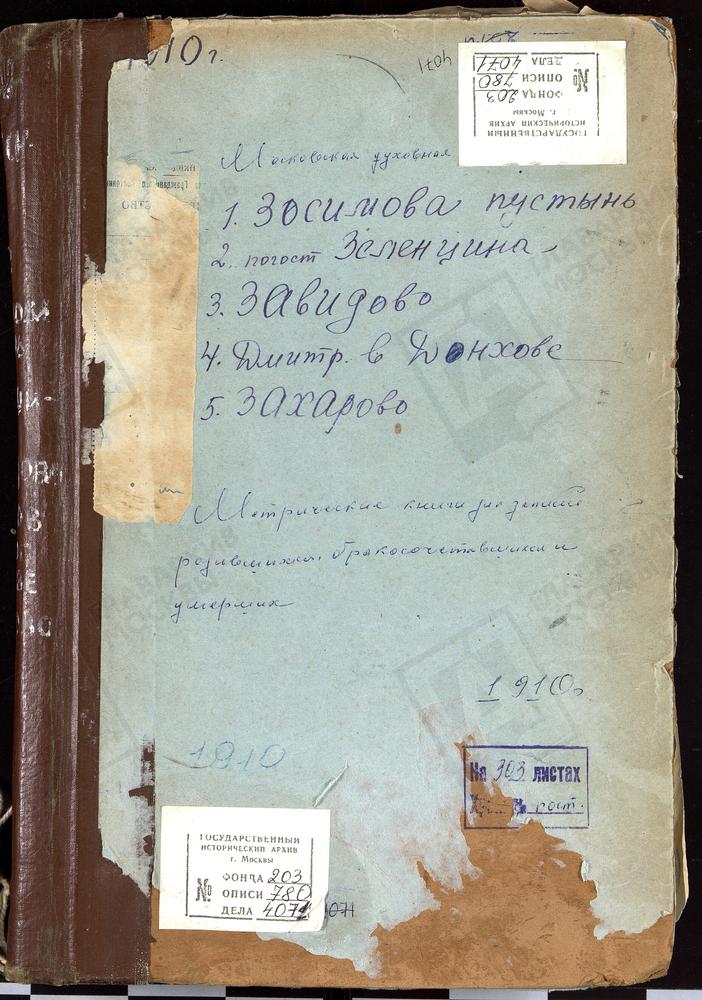 1910 г.
4071
ГОСУДАРСТВЕННЫЙ
ИСТОРИЧЕСКИЙ АРХИВ
г. Москвы
№
ФОНДА 203
ОПИСИ 780
ДЕЛА 4071
Московская духовная
1. Зосимова пустынь
2. погост Зеленцина
3. Завидово
4. Дмитр. в Донхове
5. Захарово
Метрические книги для записи
родившихся, бракосочетавшихся и
умерших
1910
1910
На 303 листах
ГОСУДАРСТВЕННЫЙ
ИСТОРИЧЕСКИЙ АРХИВ
г. Москвы
№
ФОНДА 203
ОПИСИ 780
ДЕЛА 4071
4071